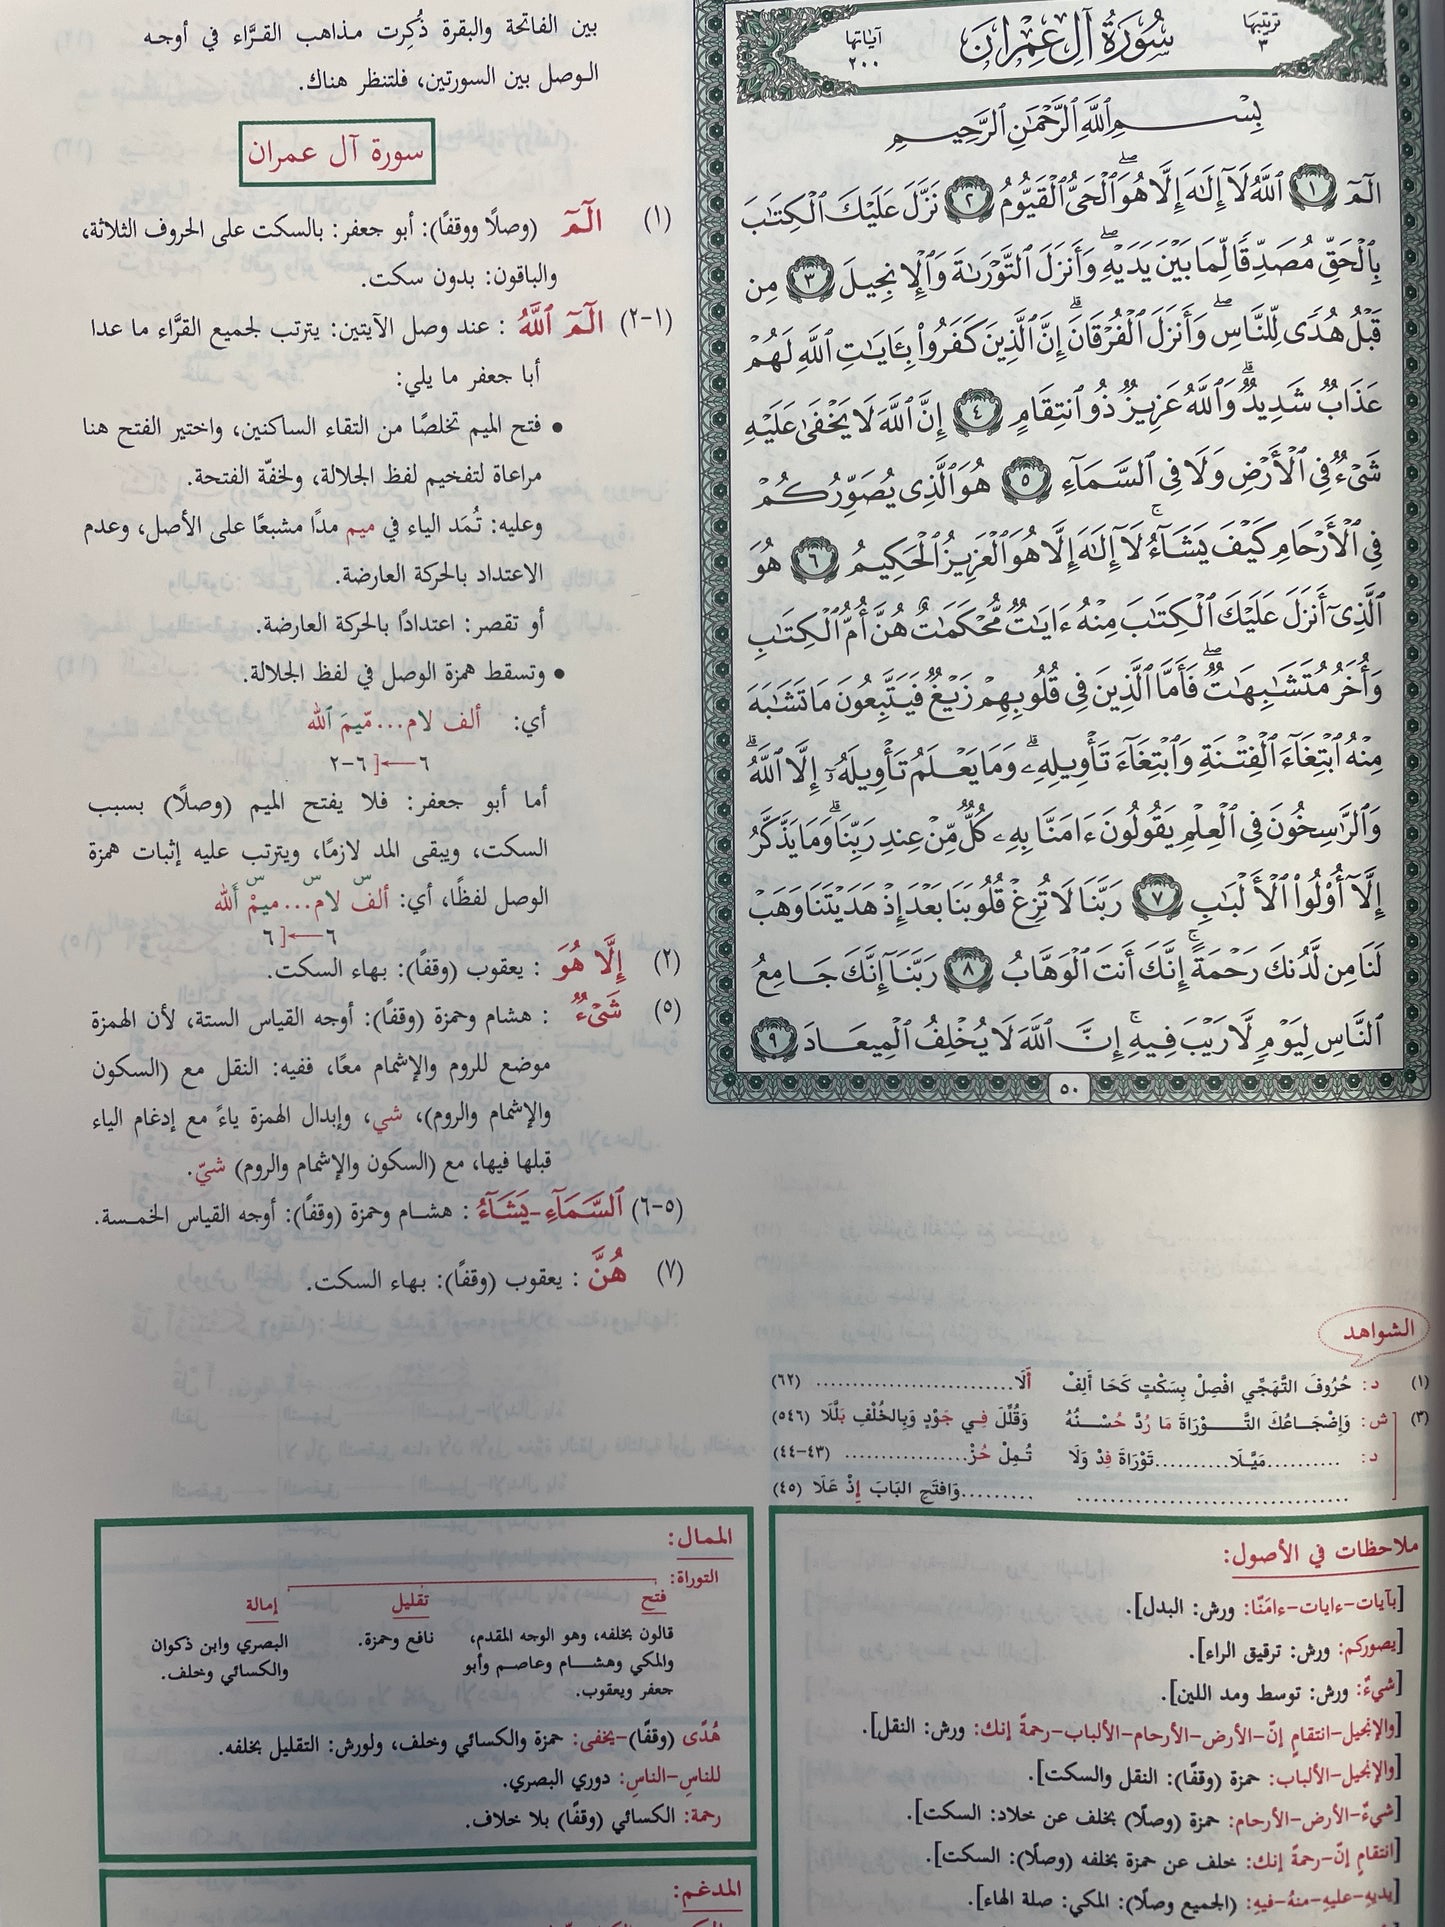 ترتيبها ٣
سُورَةُ آلِ عِمْرَانَ
آياتها ٢٠٠
بِسْمِ ٱللَّهِ ٱلرَّحْمَٰنِ ٱلرَّحِيمِ
الٓمٓ ١ ٱللَّهُ لَآ إِلَٰهَ إِلَّا هُوَ ۖ ٱلْحَىُّ ٱلْقَيُّومُ ٢ نَزَّلَ عَلَيْكَ ٱلْكِتَٰبَ
بِٱلْحَقِّ مُصَدِّقًا لِّمَا بَيْنَ يَدَيْهِ ۖ وَأَنزَلَ ٱلتَّوْرَىٰةَ وَٱلْإِنجِيلَ ٣ مِن
قَبْلُ هُدًى لِّلنَّاسِ ۖ وَأَنزَلَ ٱلْفُرْقَانَ ۗ إِنَّ ٱلَّذِينَ كَفَرُوا۟ بِـَٔايَٰتِ ٱللَّهِ لَهُمْ
عَذَابٌ شَدِيدٌ ۗ وَٱللَّهُ عَزِيزٌ ذُو ٱنتِقَامٍ ٤ إِنَّ ٱللَّهَ لَا يَخْفَىٰ عَلَيْهِ
شَىْءٌ فِى ٱلْأَرْضِ وَلَا فِى ٱلسَّمَآءِ ٥ هُوَ ٱلَّذِى يُصَوِّرُكُمْ
فِى ٱلْأَرْحَامِ كَيْفَ يَشَآءُ ۚ لَآ إِلَٰهَ إِلَّا هُوَ ٱلْعَزِيزُ ٱلْحَكِيمُ ٦ هُوَ
ٱلَّذِىٓ أَنزَلَ عَلَيْكَ ٱلْكِتَٰبَ مِنْهُ ءَايَٰتٌ مُّحْكَمَٰتٌ هُنَّ أُمُّ ٱلْكِتَٰبِ
وَأُخَرُ مُتَشَٰبِهَٰتٌ ۖ فَأَمَّا ٱلَّذِينَ فِى قُلُوبِهِمْ زَيْغٌ فَيَتَّبِعُونَ مَا تَشَٰبَهَ
مِنْهُ ٱبْتِغَآءَ ٱلْفِتْنَةِ وَٱبْتِغَآءَ تَأْوِيلِهِۦ ۗ وَمَا يَعْلَمُ تَأْوِيلَهُۥٓ إِلَّا ٱللَّهُ ۗ
وَٱلرَّٰسِخُونَ فِى ٱلْعِلْمِ يَقُولُونَ ءَامَنَّا بِهِۦ كُلٌّ مِّنْ عِندِ رَبِّنَا ۗ وَمَا يَذَّكَّرُ
إِلَّآ أُو۟لُوا۟ ٱلْأَلْبَٰبِ ٧ رَبَّنَا لَا تُزِغْ قُلُوبَنَا بَعْدَ إِذْ هَدَيْتَنَا وَهَبْ
لَنَا مِن لَّدُنكَ رَحْمَةً ۚ إِنَّكَ أَنتَ ٱلْوَهَّابُ ٨ رَبَّنَآ إِنَّكَ جَامِعُ
ٱلنَّاسِ لِيَوْمٍ لَّا رَيْبَ فِيهِ ۚ إِنَّ ٱللَّهَ لَا يُخْلِفُ ٱلْمِيعَادَ ٩
٥٠
بين الفاتحة والبقرة ذُكِرت مذاهب القرَّاء في أوجه
الوصل بين السورتين، فلتنظر هناك.
سورة آل عمران
(١) الٓمٓ (وصلًا ووقفًا): أبو جعفر: بالسكت على الحروف الثلاثة،
والباقون: بدون سكت.
(١-٢) الٓمٓ ٱللَّهُ : عند وصل الآيتين: يترتب لجميع القرَّاء ما عدا
أبا جعفر ما يلي:
• فتح الميم تخلصًا من التقاء الساكنين، واختير الفتح هنا
مراعاة لتفخيم لفظ الجلالة، ولخفّة الفتحة.
وعليه: تُمَد الياء في ميم مدًا مشبعًا على الأصل، وعدم
الاعتداد بالحركة العارضة.
أو تقصر: اعتدادًا بالحركة العارضة.
• وتسقط همزة الوصل في لفظ الجلالة.
أي: ألف لام...مّيمَ ٱلله
٦ ←] ٦-٢
أما أبو جعفر: فلا يفتح الميم (وصلًا) بسبب
السكت، ويبقى المد لازمًا، ويترتب عليه إثبات همزة
الوصل لفظًا، أي: ألفۜ لامۜ...ميمْۜ أَلله
٦ ←] ٦
(٢) إِلَّا هُوَ : يعقوب (وقفًا): بهاء السكت.
(٥) شَىْءٌ : هشام وحمزة (وقفًا): أوجه القياس الستة، لأن الهمزة
موضع للروم والإشمام معًا، ففيه: النقل مع (السكون
والإشمام والروم)، شي، وإبدال الهمزة ياءً مع إدغام الياء
قبلها فيها، مع (السكون والإشمام والروم) شيّ.
(٥-٦) ٱلسَّمَآءِ-يَشَآءُ : هشام وحمزة (وقفًا): أوجه القياس الخمسة.
(٧) هُنَّ : يعقوب (وقفًا): بهاء السكت.
الشواهد
(١) د: حُرُوفَ التَّهَجِّي افْصِلْ بِسَكْتٍ كَحَا أَلِفْ أَلَا............................ (٦٢)
(٣) ش: وَإِضْجَاعُكَ التَّوْرَاةَ مَا رُدَّ حُسْنُهُ وَقُلِّلَ فِي جَوْدٍ وَبِالخُلْفِ بَلَّلَا (٥٤٦)
د: ..........مَيِّلَا..........تَوْرَاةَ فِدْ وَلَا تُمِلْ حُزْ.................. (٤٣-٤٤)
.................................. .........وَافتَحِ البَابَ إِذْ عَلَا (٤٥)
ملاحظات في الأصول:
[بآيات-ءايات-ءامَنّا: ورش: البدل].
[يصوركم: ورش: ترقيق الراء].
[شيءٌ: ورش: توسط ومد اللين].
[والإنجيل-انتقامٍ إنّ-الأرض-الأرحام-الألباب-رحمةً إنك: ورش: النقل].
[والإنجيل-الألباب: حمزة (وقفًا): النقل والسكت].
[شيءٌ-الأرض-الأرحام: حمزة (وصلًا) بخلف عن خلاد: السكت].
[انتقامٍ إنّ-رحمةً إنك: خلف عن حمزة بخلفه (وصلًا): السكت].
[يديهِ-عليهِ-منهُ-فيهِ: (الجميع وصلًا): المكي: صلة الهاء].
الممال:
التوراة:
فتح تقليل إمالة
قالون بخلفه، وهو الوجه المقدم، نافع وحمزة. البصري وابن ذكوان
والمكي وهشام وعاصم وأبو والكسائي وخلف.
جعفر ويعقوب.
هُدًى (وقفًا)-يخفى: حمزة والكسائي وخلف، ولورش: التقليل بخلفه.
للناسِ-الناسِ: دوري البصري.
رحمة: الكسائي (وقفًا) بلا خلاف.
المدغم: